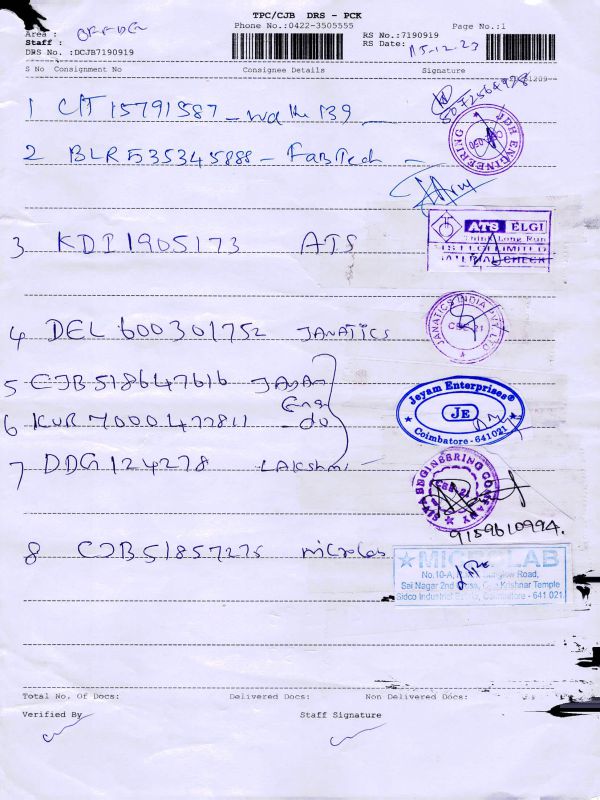 TPC/CJB DRS - PCK
Phone No.:0422-3505555
Page No.:1
Area :
Staff :
DRS No. :DCJB7190919
RS No.:7190919
RS Date: 15-12-23
S No Consignment No Consignee Details Signature
1 CIT 15791587 - 139
JDH ENGINEERING
2 BLR 535345888 - FabTech -
3 KDI 1905173 ATS
ATS ELGI
4 DEL 600301752 JANATICS
JANATICS INDIA PVT LTD
CBE-21
5 CJB 518647616 JAYAM Eng
6 KUR 70001477811 - do
Jeyam Enterprises®
JE
Coimbatore - 641 021
7 DDG 124278 LAKSHMI -
ENGINEERING COMPANY
CBE-21
9159610994.
8 CJB 51857275 microlab
MICROLAB
No.10-A, Road,
Sai Nagar 2nd Krishnar Temple
Sidco Industrial Coimbatore - 641 021
Total No. Of Docs: Delivered Docs: Non Delivered Docs:
Verified By Staff Signature